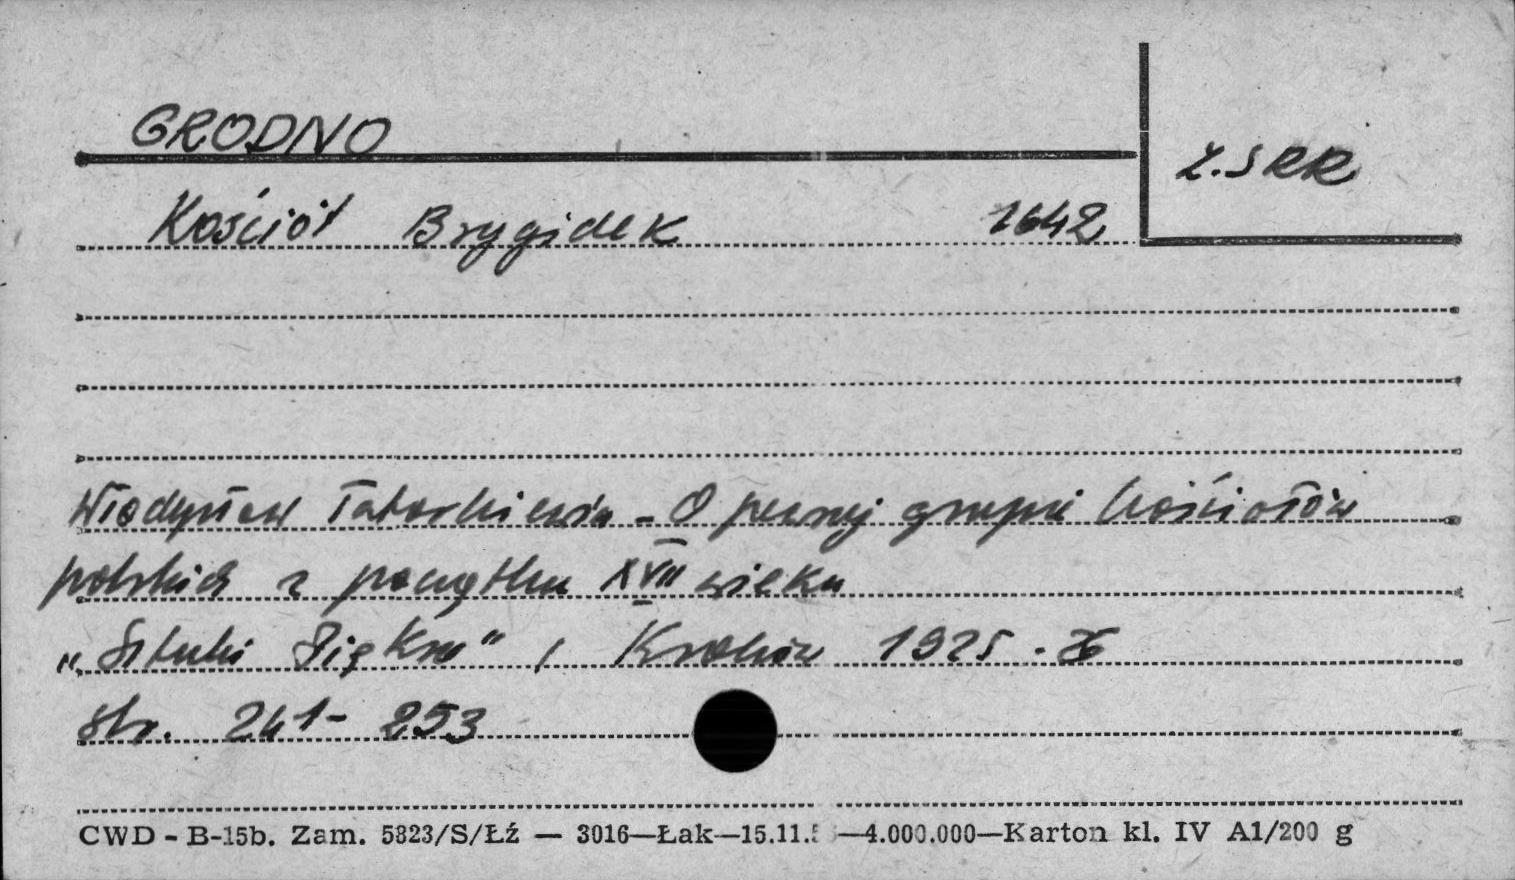 GRODNO
Z.SRR
Kościół Brygidek 1642
Władysław Tatarkiewicz - O pewnej grupie kościołów
polskich z początku XVII wieku
„Sztuki Piękne", Kraków 1925.26
str. 241-253
CWD - B-15b. Zam. 5823/S/Łź — 3016—Łak—15.11.5 —4.000.000—Karton kl. IV A1/200 g